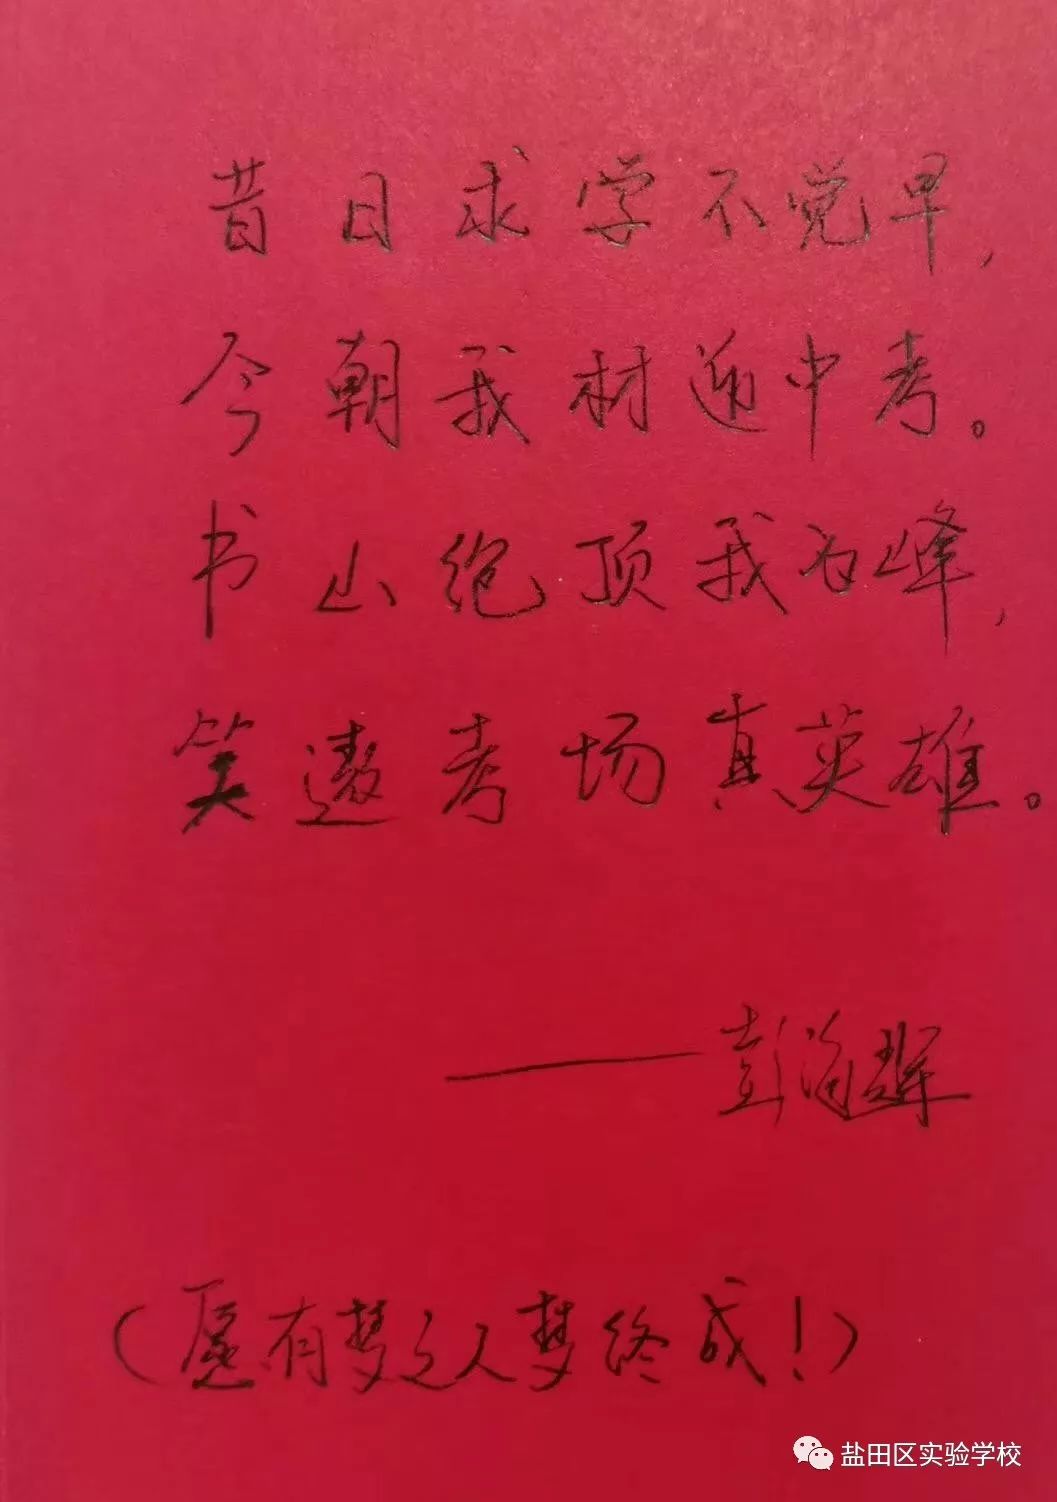 昔日求学不觉早,
今朝我材迎中考。
书山绝顶我为峰,
笑遨考场真英雄。
——彭海辉
(愿有梦之人梦终成!)
盐田区实验学校